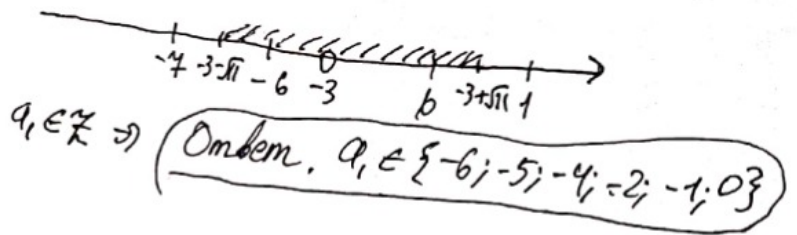 -7 -3-√11 -6 -3 0 -3+√11 1
a₁ ∈ ℤ ⇒ Ответ. a₁ ∈ {-6; -5; -4; -2; -1; 0}